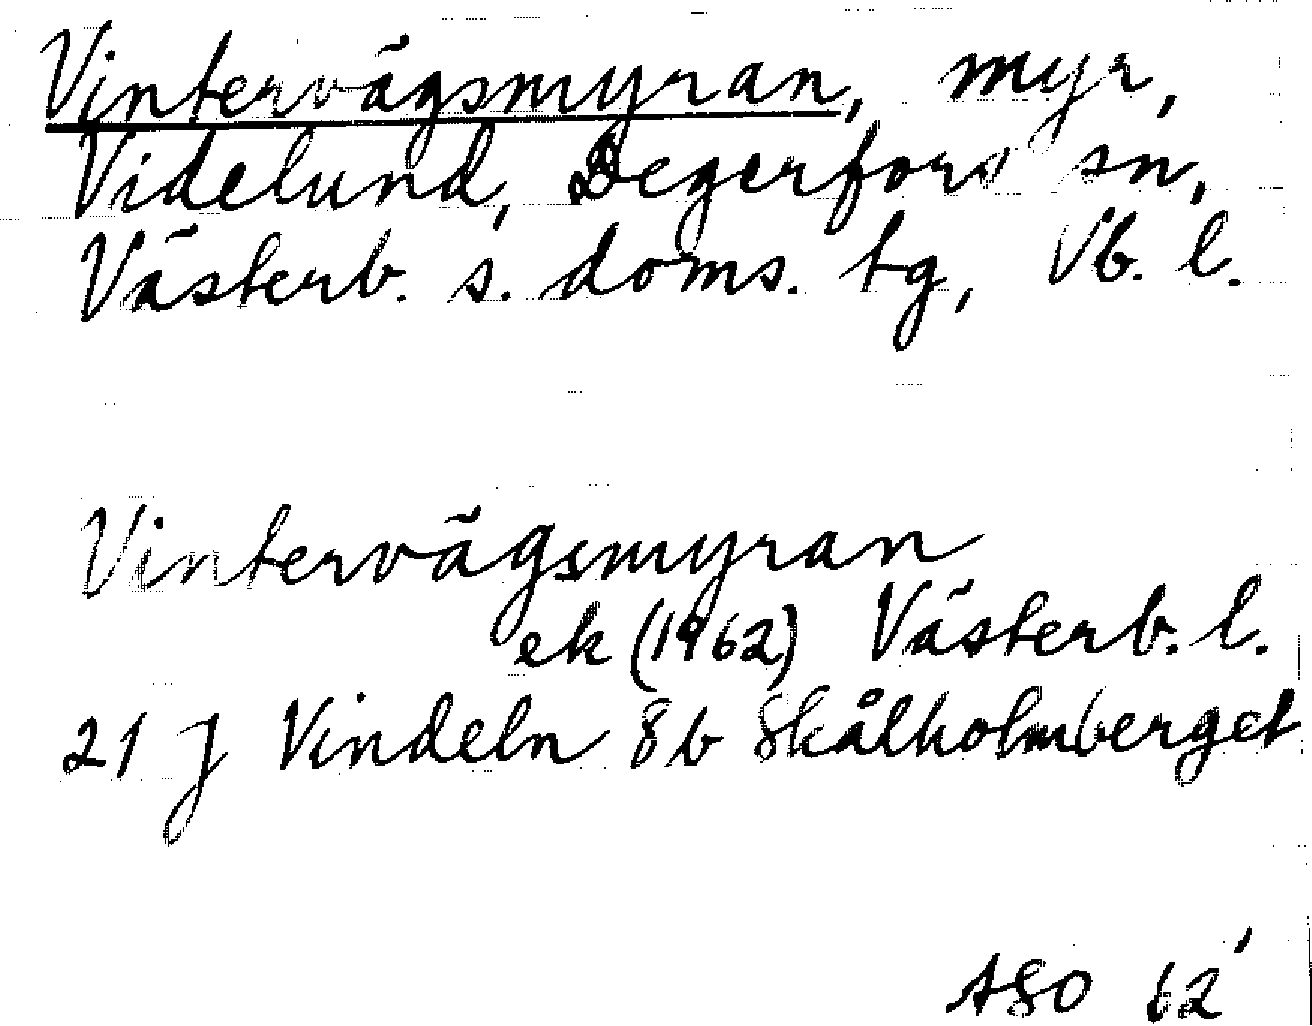 Vintervägsmyran, myr,
Videlund, Degerfors sn,
Västerb. s. doms. tg, Vb. l.
Vintervägsmyran
ek (1962) Västerb. l.
21 J Vindeln 8b Skålholmberget
ASO 62